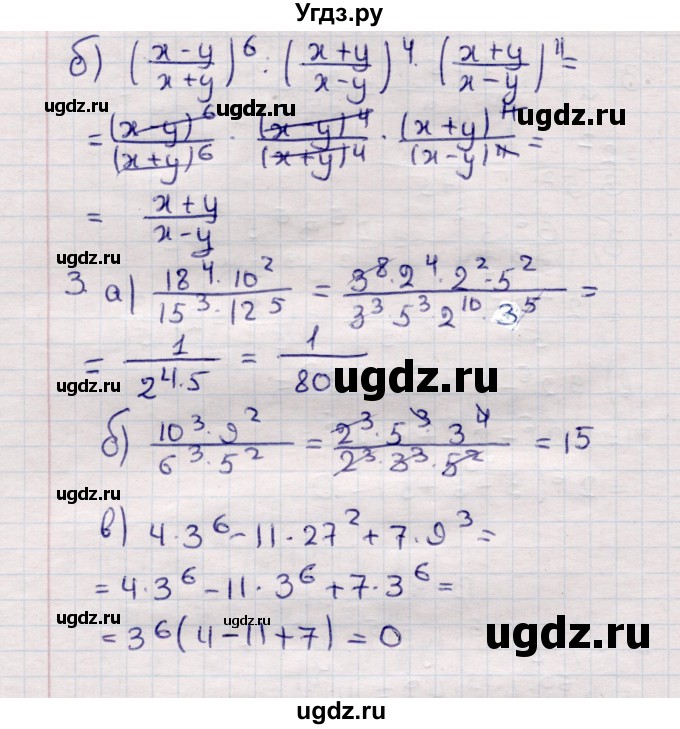 Угдз.ру
б) ((x-y)/(x+y))^6 : ((x+y)/(x-y))^4 · ((x+y)/(x-y))^11 =
ugdz.ru ugdz.ru
= (x-y)^6/(x+y)^6 · (x-y)^4/(x+y)^4 · (x+y)^11/(x-y)^11 =
ugdz.ru ugdz.ru
= (x+y)/(x-y)
ugdz.ru
3. а) (18^4 · 10^2)/(15^3 · 12^5) = (3^8 · 2^4 · 2^2 · 5^2)/(3^3 · 5^3 · 2^10 · 3^5) =
= 1/(2^4 · 5) = 1/80
ugdz.ru
б) (10^3 · 9^2)/(6^3 · 5^2) = (2^3 · 5^3 · 3^4)/(2^3 · 3^3 · 5^2) = 15
ugdz.ru
в) 4 · 3^6 - 11 · 27^2 + 7 · 9^3 =
= 4 · 3^6 - 11 · 3^6 + 7 · 3^6 =
= 3^6 (4 - 11 + 7) = 0
ugdz.ru ugdz.ru ugdz.ru
ugdz.ru